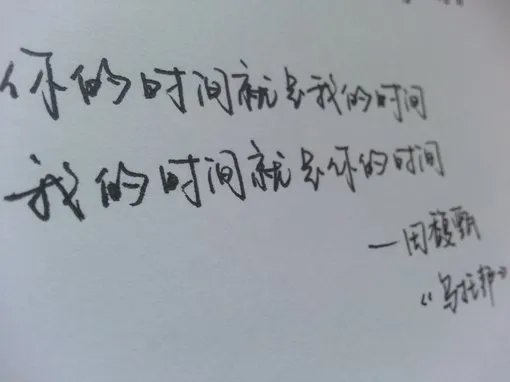 你的时间就是我的时间
我的时间就是你的时间
—田馥甄
《乌托邦》